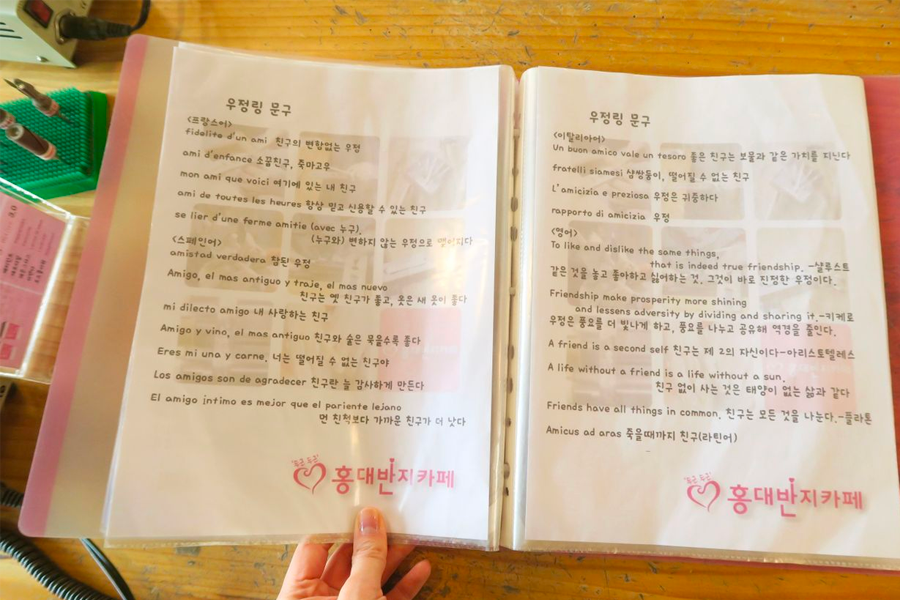 우정링 문구
<프랑스어>
fidelite d'un ami 친구의 변함없는 우정
ami d'enfance 소꿉친구, 죽마고우
mon ami que voici 여기에 있는 내 친구
ami de toutes les heures 항상 믿고 신용할 수 있는 친구
se lier d'une ferme amitie (avec 누구),
(누구와) 변하지 않는 우정으로 맺어지다
<스페인어>
amistad verdadera 참된 우정
Amigo, el mas antiguo y traje, el mas nuevo
친구는 옛 친구가 좋고, 옷은 새 옷이 좋다
mi dilecto amigo 내 사랑하는 친구
Amigo y vino, el mas antiguo 친구와 술은 묵을수록 좋다
Eres mi una y carne, 너는 떨어질 수 없는 친구야
Los amigos son de agradecer 친구란 늘 감사하게 만든다
El amigo intimo es mejor que el pariente lejano
먼 친척보다 가까운 친구가 더 낫다
홍대반지카페
우정링 문구
<이탈리아어>
Un buon amico vale un tesoro 좋은 친구는 보물과 같은 가치를 지닌다
fratelli siamesi 샴쌍둥이, 떨어질 수 없는 친구
L'amicizia e preziosa 우정은 귀중하다
rapporto di amicizia 우정
<영어>
To like and dislike the same things,
that is indeed true friendship. -샬루스트
같은 것을 놓고 좋아하고 싫어하는 것, 그것이 바로 진정한 우정이다.
Friendship make prosperity more shining
and lessens adversity by dividing and sharing it.-키케로
우정은 풍요를 더 빛나게 하고, 풍요를 나누고 공유해 역경을 줄인다.
A friend is a second self 친구는 제 2의 자신이다-아리스토텔레스
A life without a friend is a life without a sun.
친구 없이 사는 것은 태양이 없는 삶과 같다
Friends have all things in common. 친구는 모든 것을 나눈다.-플라톤
Amicus ad aras 죽을때까지 친구(라틴어)
홍대반지카페